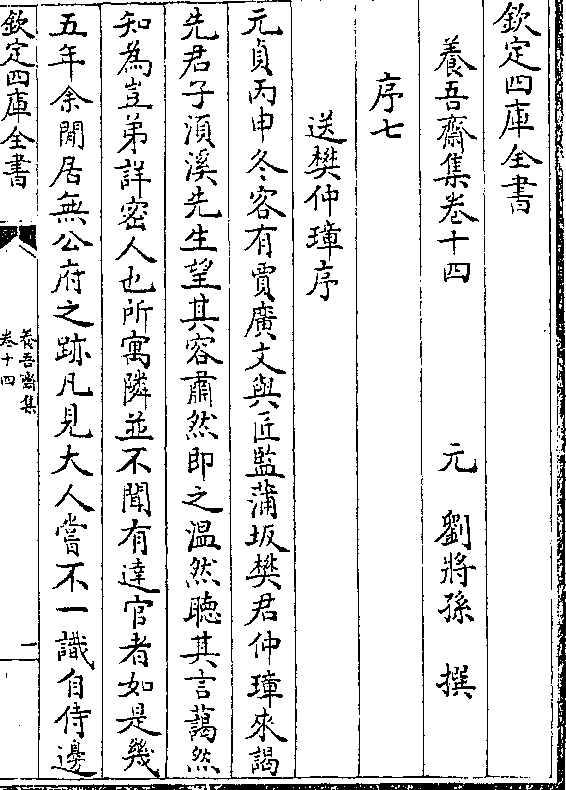 欽定四庫全書
養吾齋集卷十四
元 劉將孫 撰
序七
送樊仲璋序
元貞丙申冬客有賈廣文與匠監蒲坂樊君仲璋來謁
先君子須溪先生望其容肅然即之温然聽其言藹然
知為豈弟詳密人也所寓隣並不聞有達官者如是幾
五年余閒居無公府之跡凡見大人嘗不一識自侍邊
欽定四庫全書
養吾齋集
卷十四
一